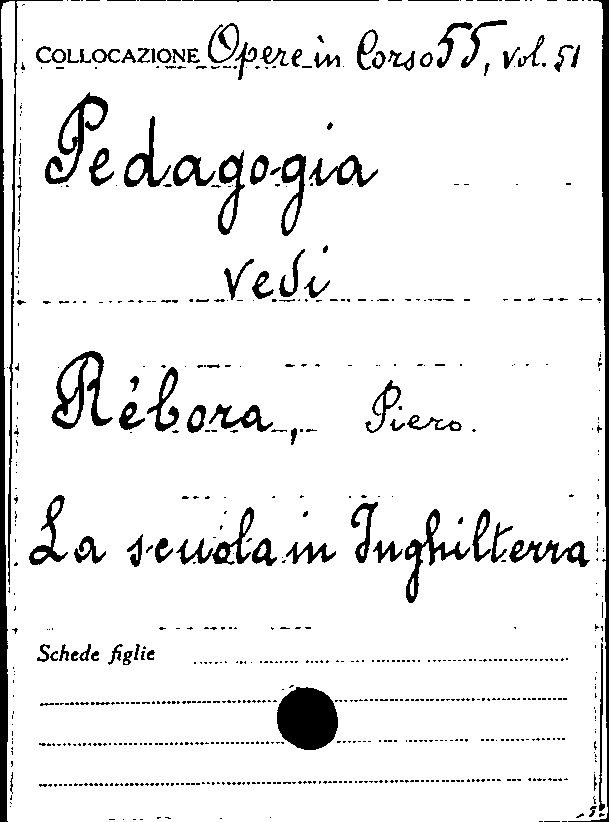 COLLOCAZIONE Opere in Corso 55, vol. 51
Pedagogia
vedi
Rèbora, Piero.
La scuola in Inghilterra
Schede figlie